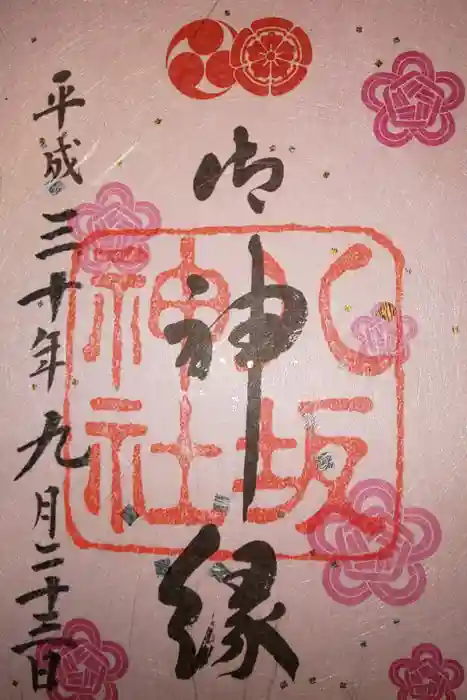 御神縁
八坂
神社
平成三十年九月二十三日